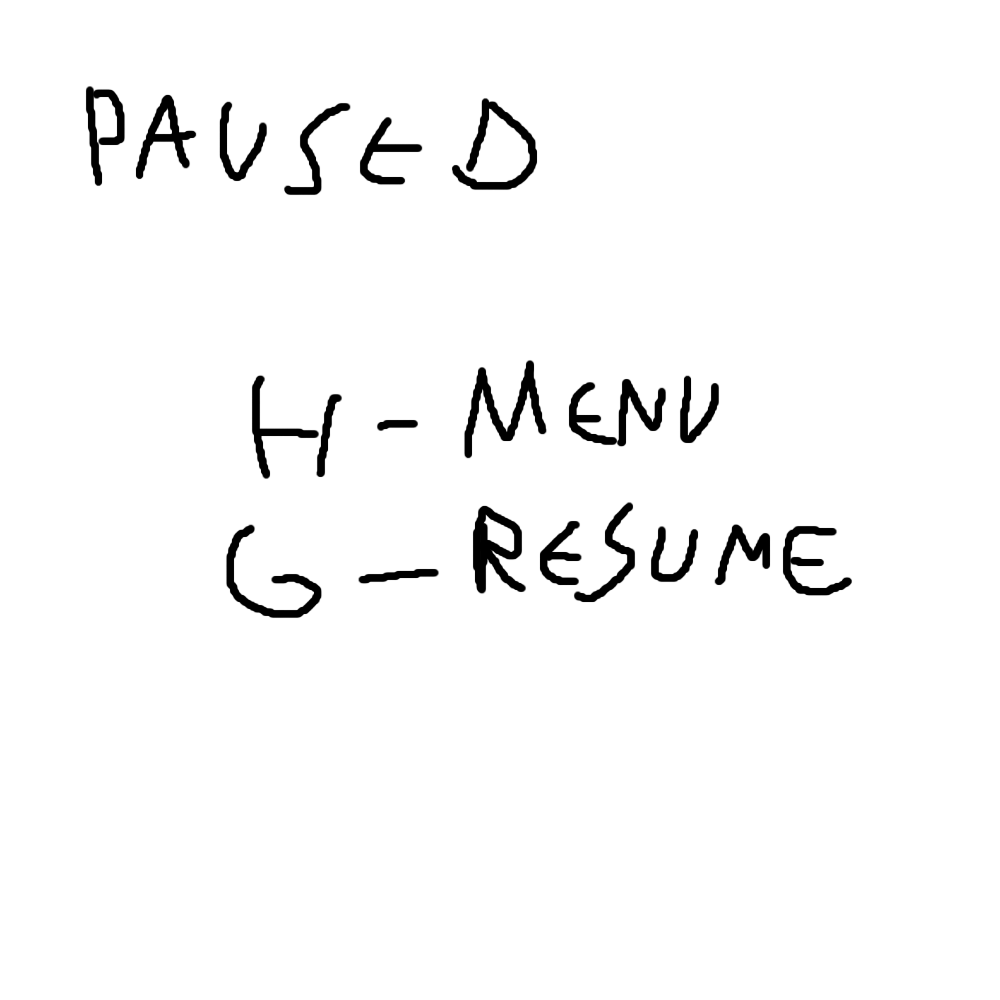 PAUSED
H - MENU
G - RESUME